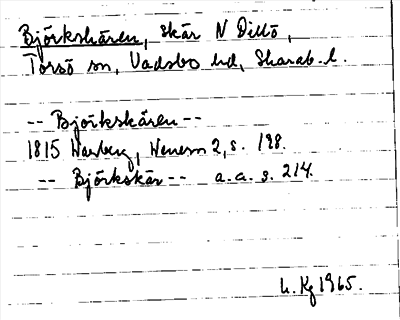 Björkskären, skär N Dillö,
Torsö sn, Vadsbo hd, Skarab. l.
-- Björkskären --
1815 Warberg, Wenern 2, s. 198.
-- Björkskär -- a.a. s. 214.
L. Kg 1965.